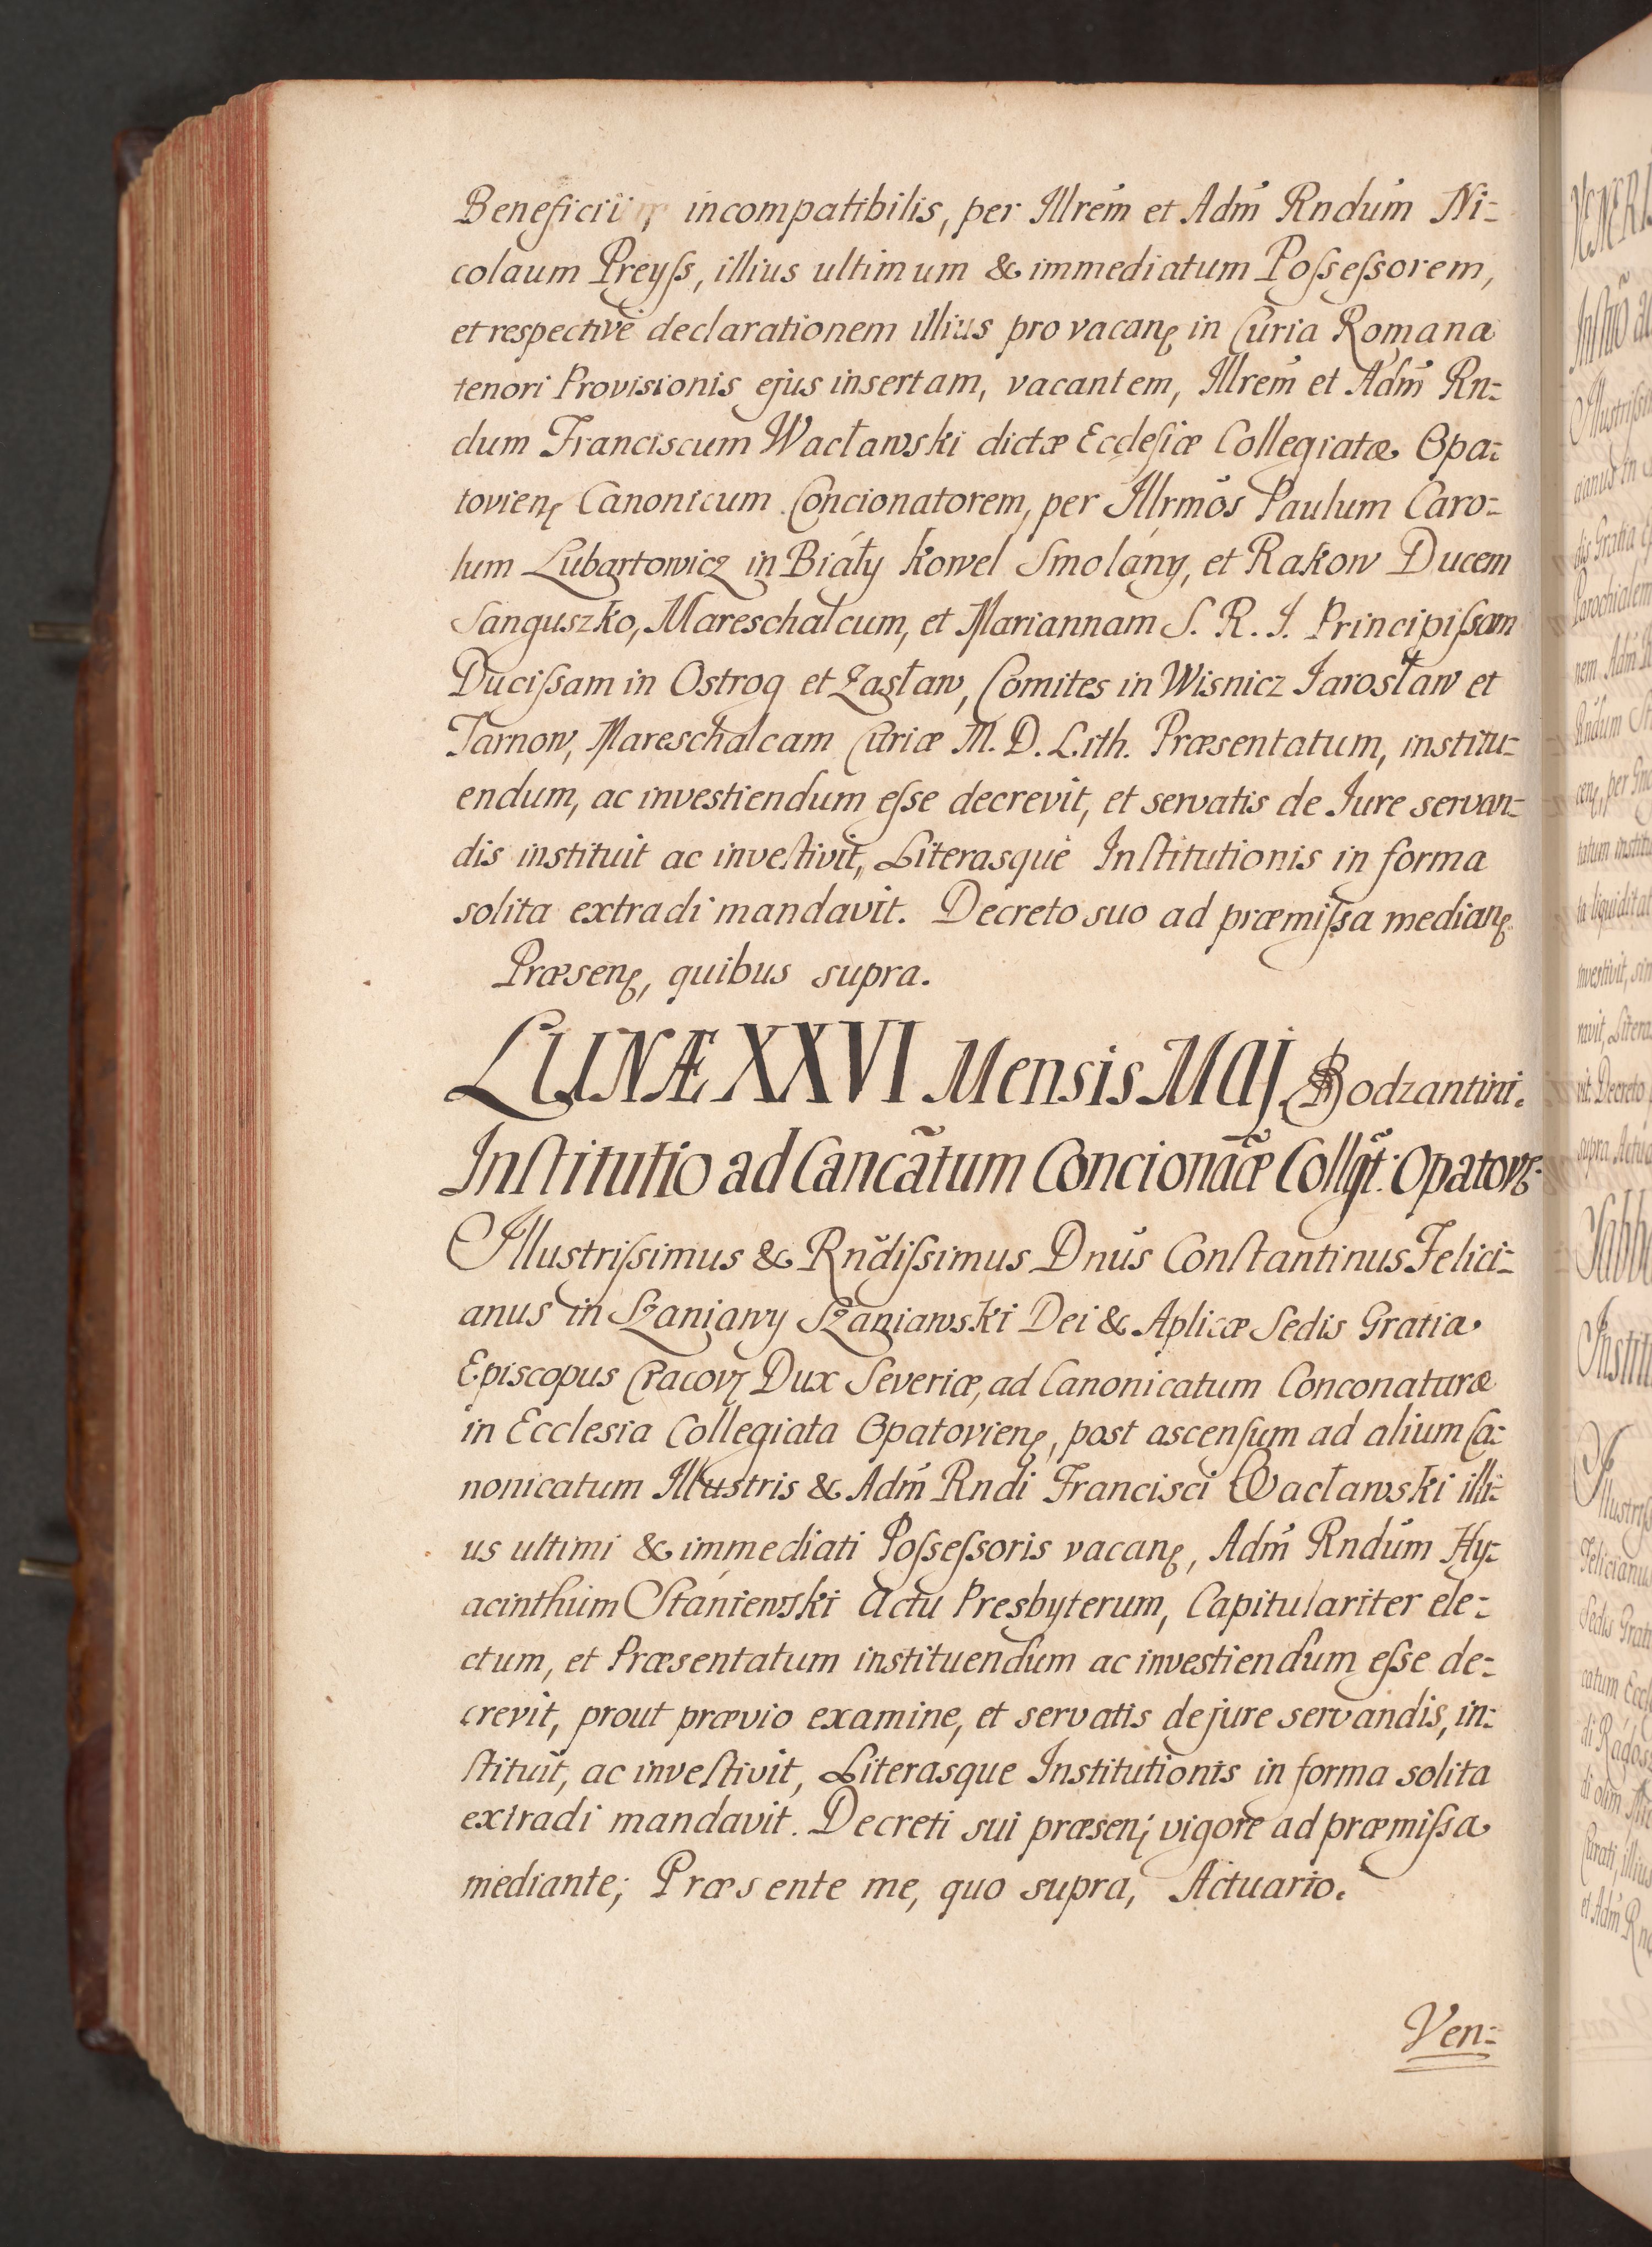 Beneficii incompatibilis, per Illrem̄ et Adm̄ Rndum̄ Ni-
colaum Preyſs, illius ultimum & immediatum Poſseſsorem,
et respectivè declarationem illius pro vacanȩ in Curia Romana
tenori Provisionis ejus insertam, vacantem, Illrem̄ et Adm̄ Rn-
dum Franciscum Wacławski dictæ Eccleſiæ Collegiatæ Opa-
tovienȩ Canonicum Concionatorem, per Illrmōs Paulum Caro-
lum Lubartowicz in Biáły Kowel Smolány, et Rakow Ducem
Sanguszko, Mareschalcum, et Mariannam S. R. I. Principiſsam
Duciſsam in Ostrog et Zasław, Comites in Wisnicz Jarosław et
Tarnow, Mareschalcam Curiæ M. D. Lith. Præsentatum, institu-
endum, ac investiendum eſse decrevit, et servatis de Iure servan-
dis instituit ac inveſtivit, Literasquè Inſtitutionis in forma
solita extradi mandavit. Decreto suo ad præmiſsa medianȩ
Præsenȩ, quibus supra.
LUNÆ XXVI Mensis MAJ. Bodzantini.
Inſtitutio ad Cancātum Concionāc̄æ Collgt̄: Opatovȩ.
Illustriſsimus & Rnd̄iſsimus Dnūs Conſtantinus Felici-
anus in Szaniawy Szaniawski Dei & Aplicæ Sedis Gratia
Episcopus Cracovȩ Dux Severiæ, ad Canonicatum Conconaturæ
in Ecclesia Collegiata Opatovienȩ, post ascenſum ad alium Ca-
nonicatum Illustris & Adm̄ Rndi Francisci Wacławski illi-
us ultimi & immediati Poſseſsoris vacanȩ, Adm̄ Rndum̄ Hy-
acinthum Stániewski Actu Presbyterum, Capitulariter ele-
ctum, et Præsentatum instituendum ac investiendum eſse de-
crevit, prout prævio examine, et servatis de jure servandis, in-
ſtituit, ac inveſtivit, Literasque Institutionis in forma solita
extradi mandavit. Decreti sui præsenȩ vigore ad præmiſsa
mediante; Præsente me, quo supra, Actuario.
Ven-